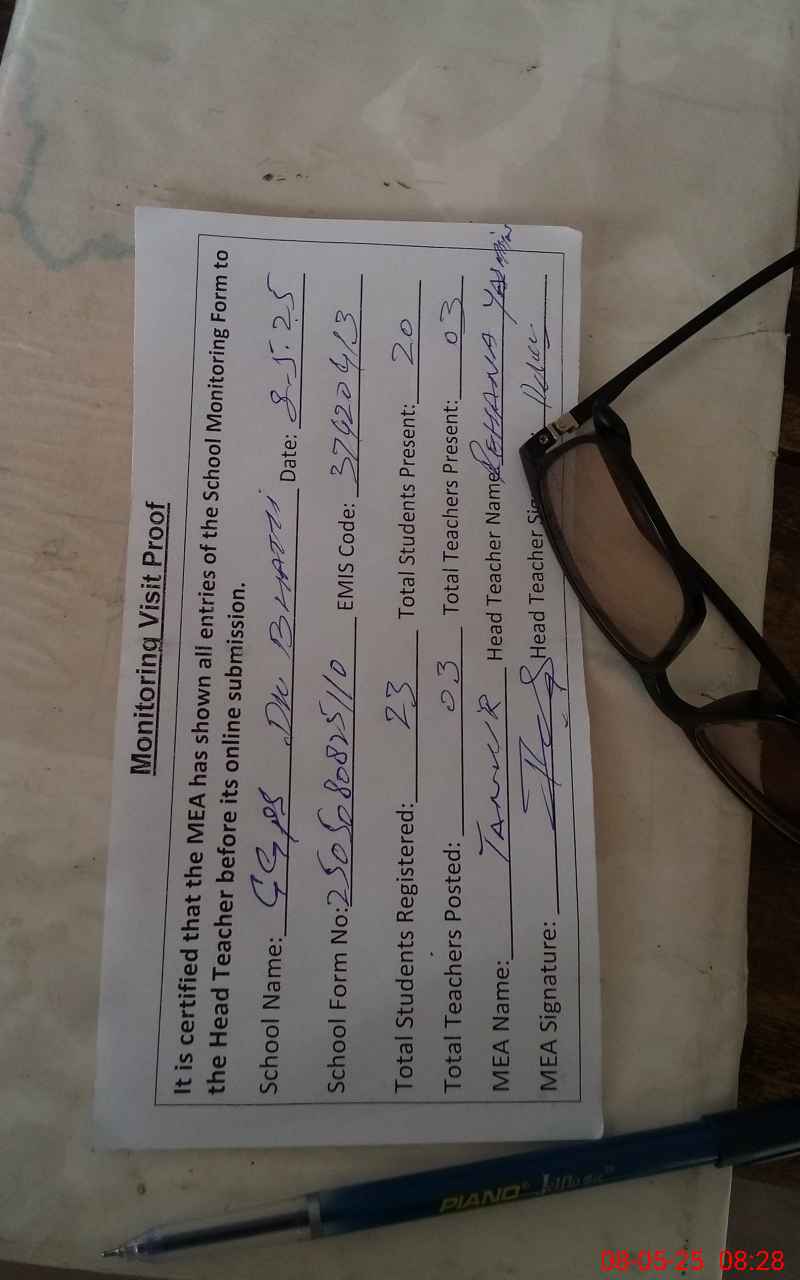 Monitoring Visit Proof
It is certified that the MEA has shown all entries of the School Monitoring Form to
the Head Teacher before its online submission.
School Name: GGPS DK BHATTI Date: 8-5-25
School Form No: 2505080825110 EMIS Code: 37420413
Total Students Registered: 23 Total Students Present: 20
Total Teachers Posted: 03 Total Teachers Present: 03
MEA Name: TANVIR Head Teacher Name REHANA YASMIN
MEA Signature: Head Teacher Sig
PIANO®
08-05-25 08:28